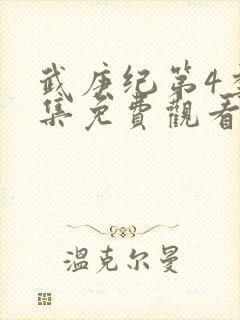 武庚纪第4季
集免費觀看
温克尔曼